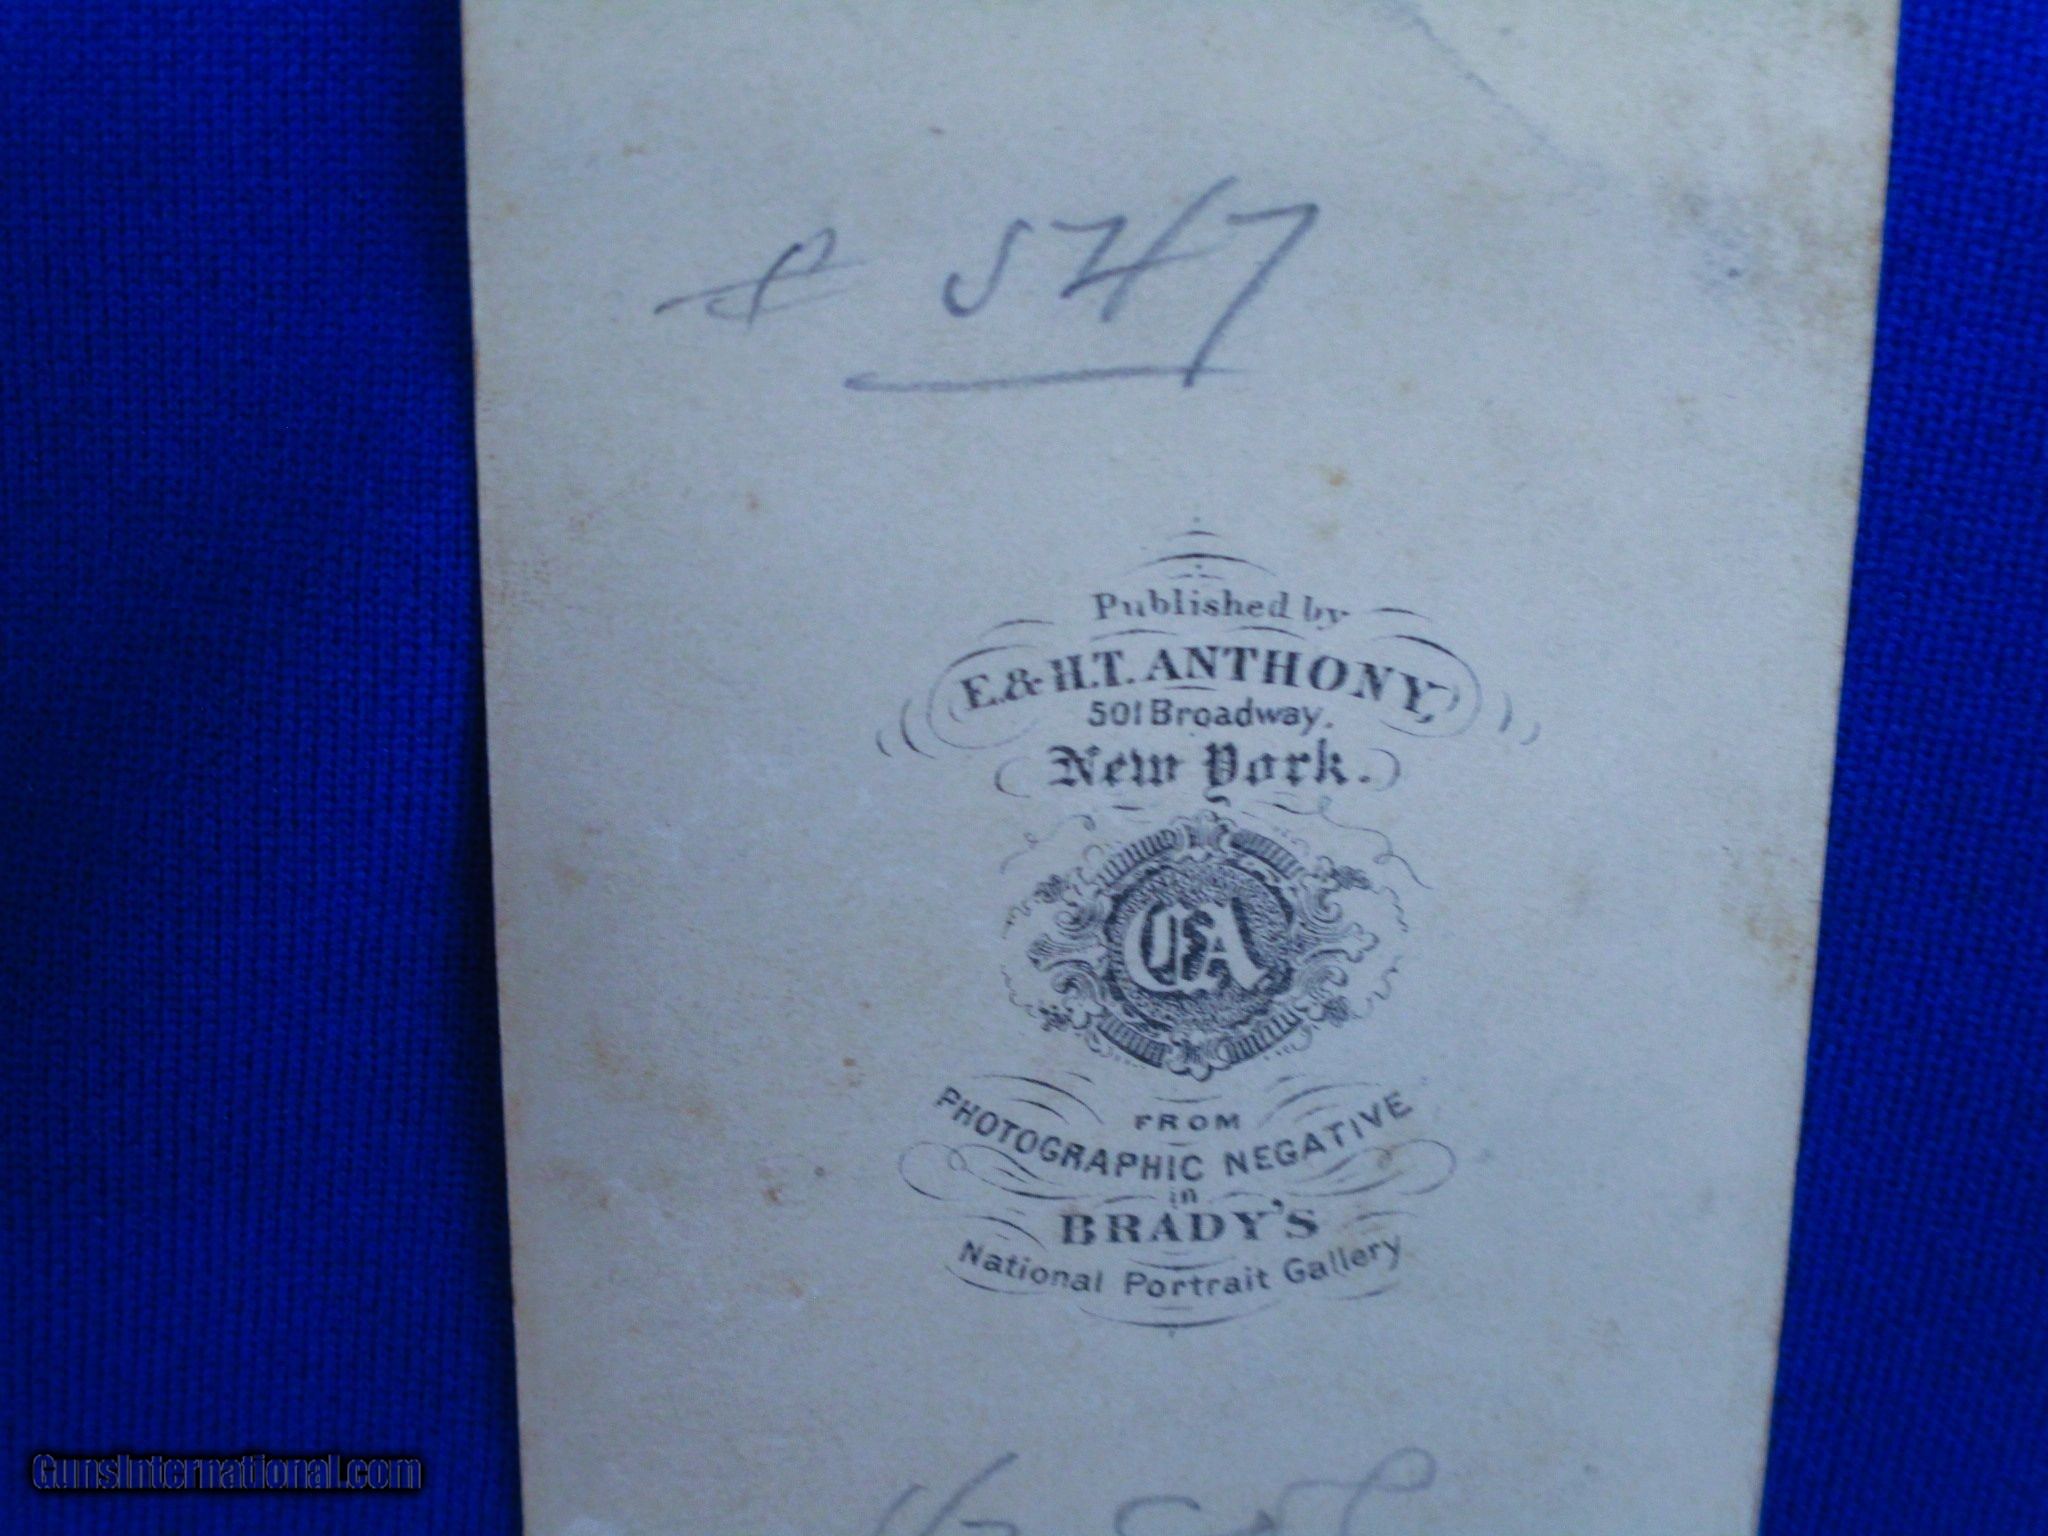 547
Published by
E. & H.T. ANTHONY,
501 Broadway.
New York.
EA
FROM
PHOTOGRAPHIC NEGATIVE
in
BRADY'S
National Portrait Gallery
GunsInternational.com